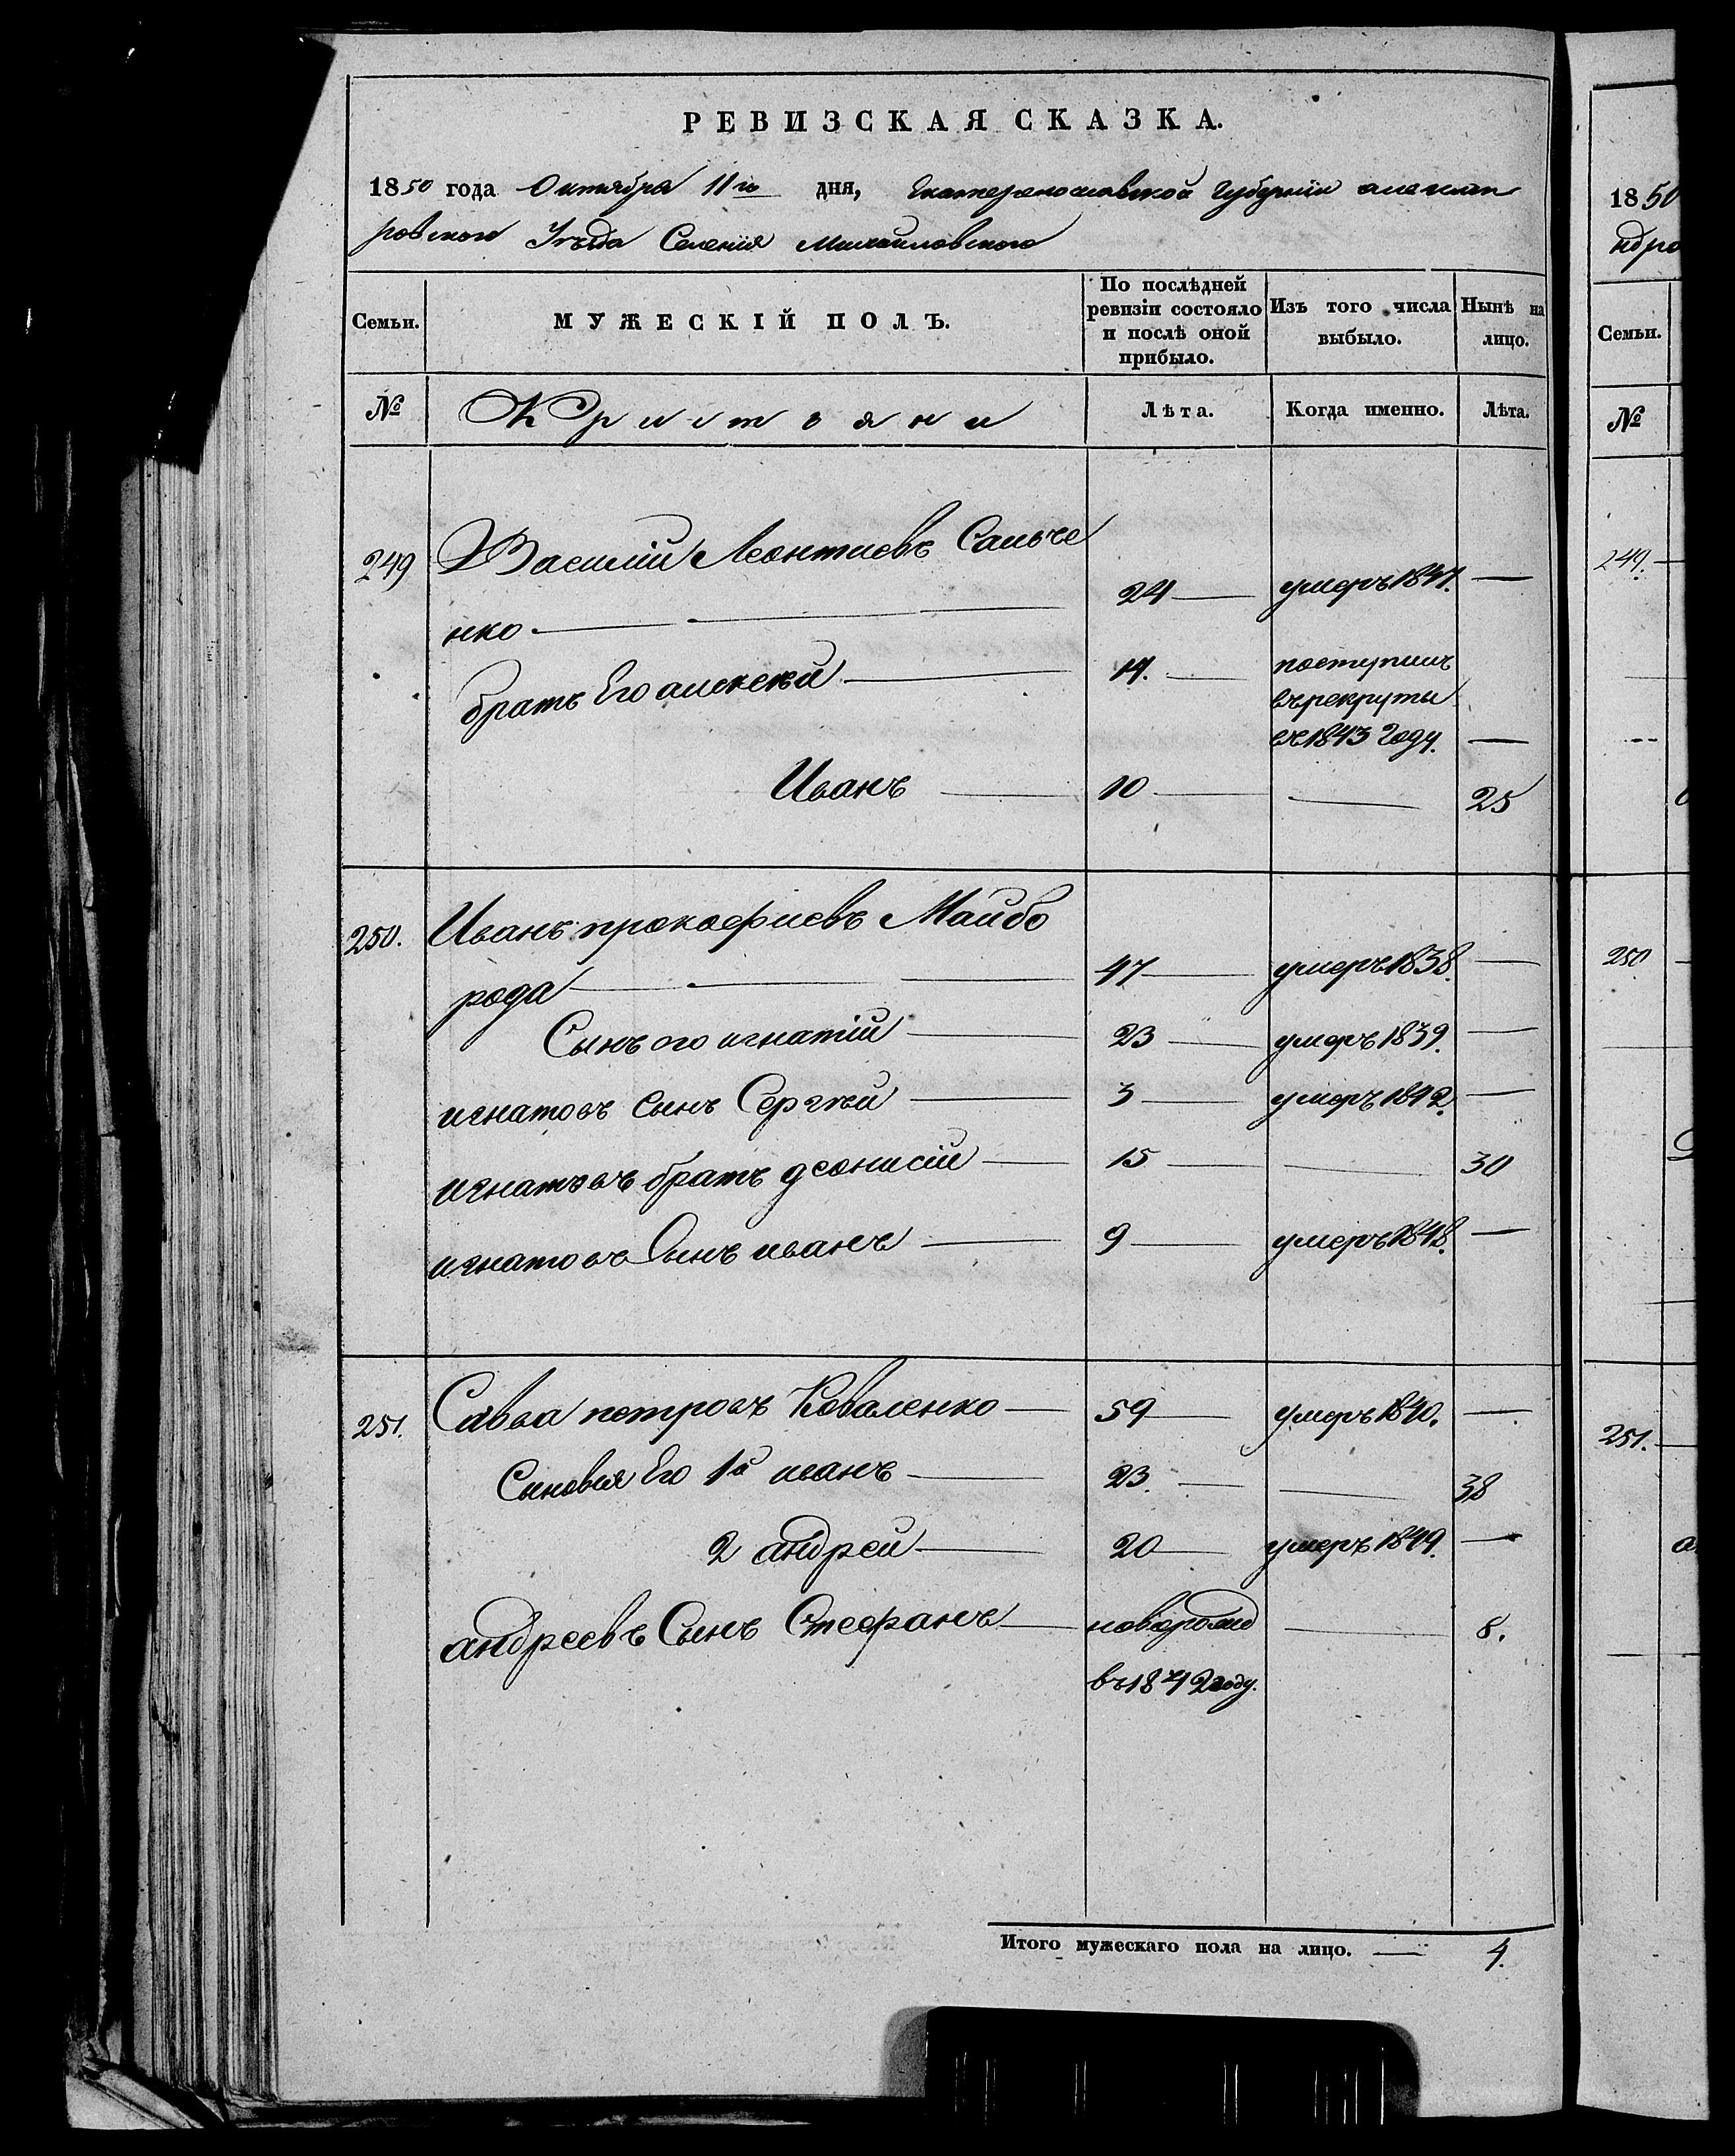 РЕВИЗСКАЯ СКАЗКА.
1850 года Октября 11го дня, Екатеринославской Губернии алексан
ровского Уезда Селения Михайловского
Семьи.
МУЖЕСКІЙ ПОЛЪ.
По послѣдней ревизіи состояло и послѣ оной прибыло.
Изъ того числа выбыло.
Нынѣ на лицо.
№
Кристьяни
Лѣта.
Когда именно.
Лѣта.
249 Василий Леонтиевъ Сальче
нко 24 умеръ 1847. —
братъ Его алексей 14. поступилъ
въ рекруты
въ 1843 Году. —
Иванъ 10 — 25
250. Иванъ прокофиевъ Майбо
рода 47 умеръ 1838. —
Сынъ его игнатій 23 умеръ 1839. —
игнатовъ сынъ Сергѣй 3 умеръ 1842. —
игнатовъ братъ деонисій 15 — 30
игнатовъ Сынъ иванъ 9 умеръ 1848. —
251. Савва петровъ Коваленко 59 умеръ 1840. —
Сыновья Его 1й иванъ 23. — 38
2 андрей 20 умеръ 1849. —
андреевъ Сынъ Стефанъ новорожд — 8.
въ 1842 году.
Итого мужескаго пола на лицо. — 4.
1850
ндро
Семьи.
№
249.
250
251.